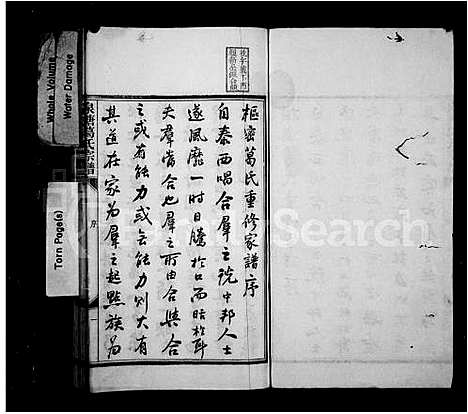 樞密葛氏重修家譜序
自泰西唱合羣之說中邦人士
遂風靡一時日騰於口而聒於耳
夫羣當合也羣之所由合與合
之或有能力或無能力則大有
其道在家為羣之起點族為
葛氏宗譜
序
一
Whole Volume
Water Damage
Torn Page(s)
FamilySearch